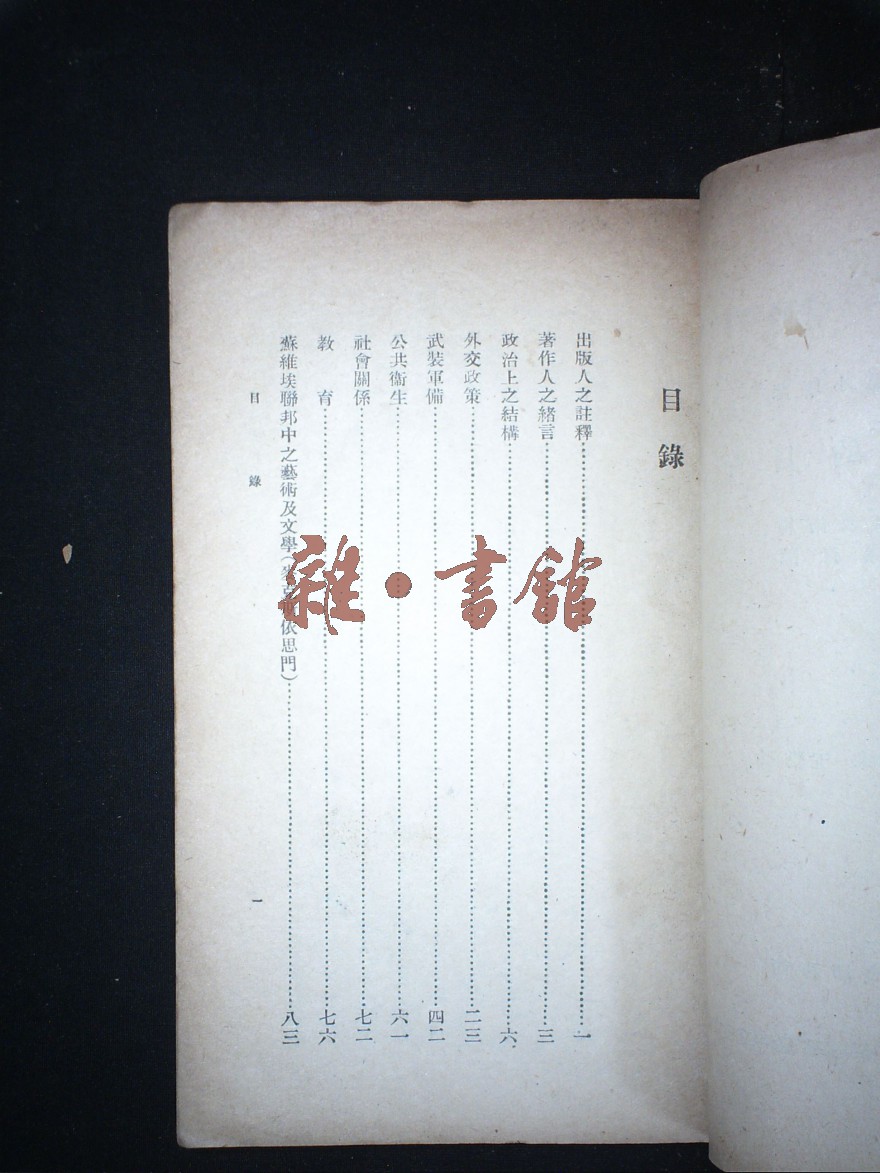 目錄
出版人之註釋 一
著作人之緒言 三
政治上之結構 六
外交政策 二三
武裝軍備 四二
公共衞生 六一
社會關係 七二
教育 七六
蘇維埃聯邦中之藝術及文學(依思門) 八三
目錄 一
雜·書館